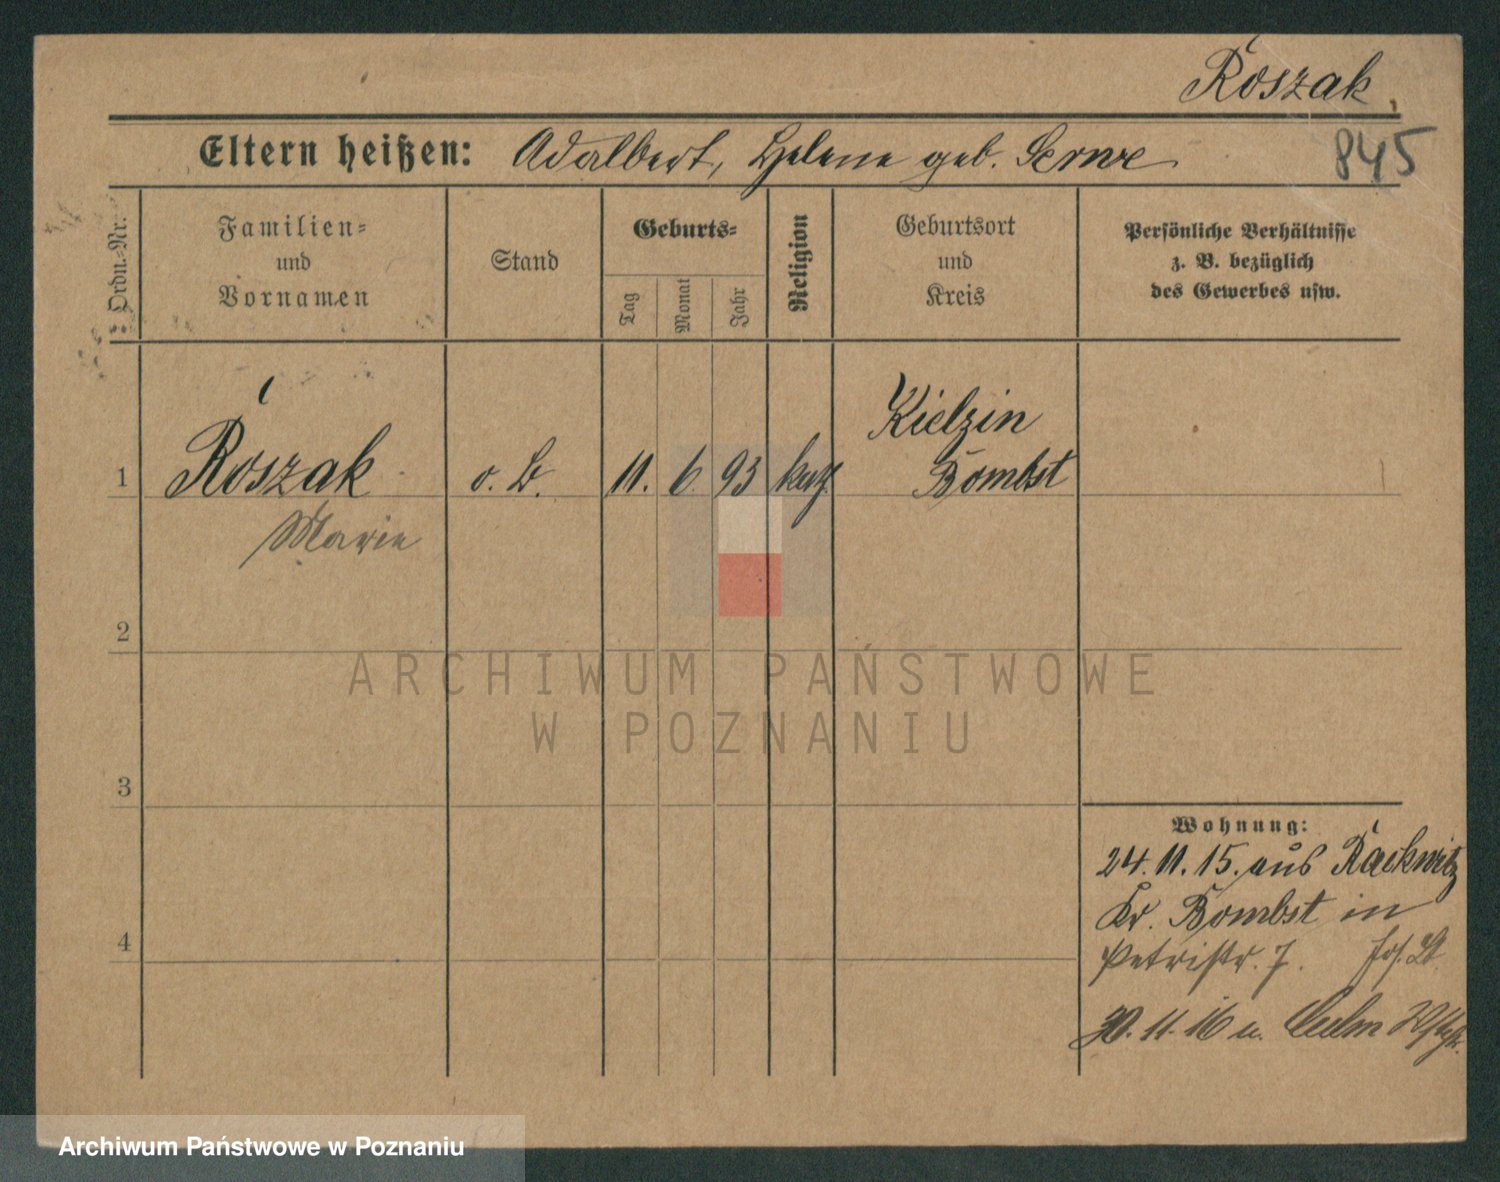 Roszak
845
Eltern heißen: Adalbert, Helene geb. Serwe
Ordn.-Nr.
Familien-
und
Vornamen
Stand
Geburts-
Tag
Monat
Jahr
Religion
Geburtsort
und
Kreis
Persönliche Verhältnisse
z. B. bezüglich
des Gewerbes usw.
1
Roszak
Marie
o. B.
11. 6. 93
kath.
Kielzin
Bomst
2
3
4
Wohnung:
24. 11. 15. aus Rackwitz
Kr. Bombst in
Petristr. 7.
30. 11. 16 n. Culm
ARCHIWUM PAŃSTWOWE
W POZNANIU
Archiwum Państwowe w Poznaniu